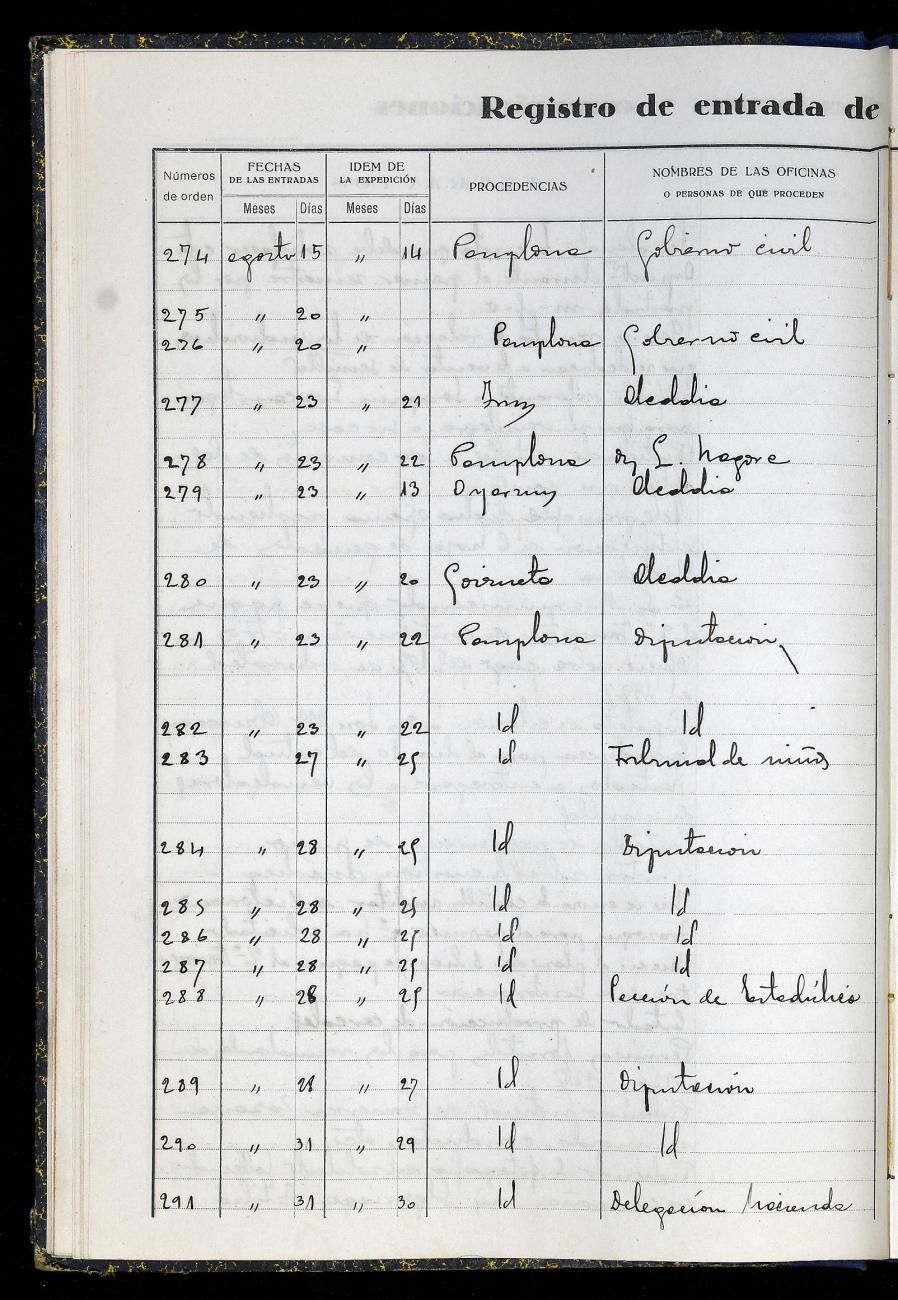 Registro de entrada de
Números de orden | FECHAS DE LAS ENTRADAS | IDEM DE LA EXPEDICIÓN | PROCEDENCIAS | NOMBRES DE LAS OFICINAS O PERSONAS DE QUE PROCEDEN
Meses | Días | Meses | Días
274 agosto 15 " 14 Pamplona Gobierno civil
275 " 20 "
276 " 20 " Pamplona Gobierno civil
277 " 23 " 21 Alcaldia
278 " 23 " 22 Pamplona Nagore
279 " 23 " 13 Oyarzun Alcaldia
280 " 23 " 20 Goizueta Alcaldia
281 " 23 " 22 Pamplona Diputacion
282 " 23 " 22 Id Id
283 " 27 " 25 Id Tribunal de niños
284 " 28 " 25 Id Diputacion
285 " 28 " 25 Id Id
286 " 28 " 25 Id Id
287 " 28 " 25 Id Id
288 " 28 " 25 Id Sección de Estadística
289 " 28 " 27 Id Diputación
290 " 31 " 29 Id Id
291 " 31 " 30 Id Delegación hacienda